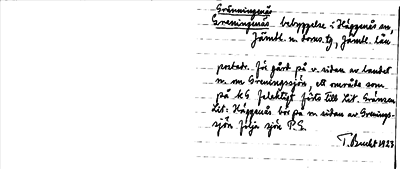 Gränningenäs
Greningenäs bebyggelse i Häggenås sn,
Jämtl. n. doms. tg, Jämtl. län
postadr. För gård på v. sidan av landsv.
n. om Greningssjön, ett område som
på KG felaktigt förts till Lit. Gränsen
Lit: Häggenås bör på n. sidan av Grenings-
sjön följa sjön P.G.
T. Bucht 1923